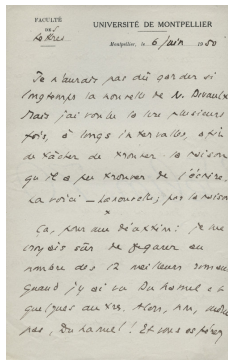 FACULTÉ
DES
Lettres
UNIVERSITÉ DE MONTPELLIER
Montpellier, le 6 juin 1950
Je n'aurais pas dû garder si
longtemps la nouvelle de N.
Mais j'ai voulu la lire plusieurs
fois, à longs intervalles, afin
de tâcher de trouver la raison
qu'il a pu trouver de l'écrire.
La voici – la nouvelle, pas la raison
x
Ça, pour une : je me
croyais sûr de figurer au
nombre des 12 meilleurs romans
quand j'y ai vu Duhamel et
quelques autres. Alors, non,
pas, Duhamel ! Et vous espérez